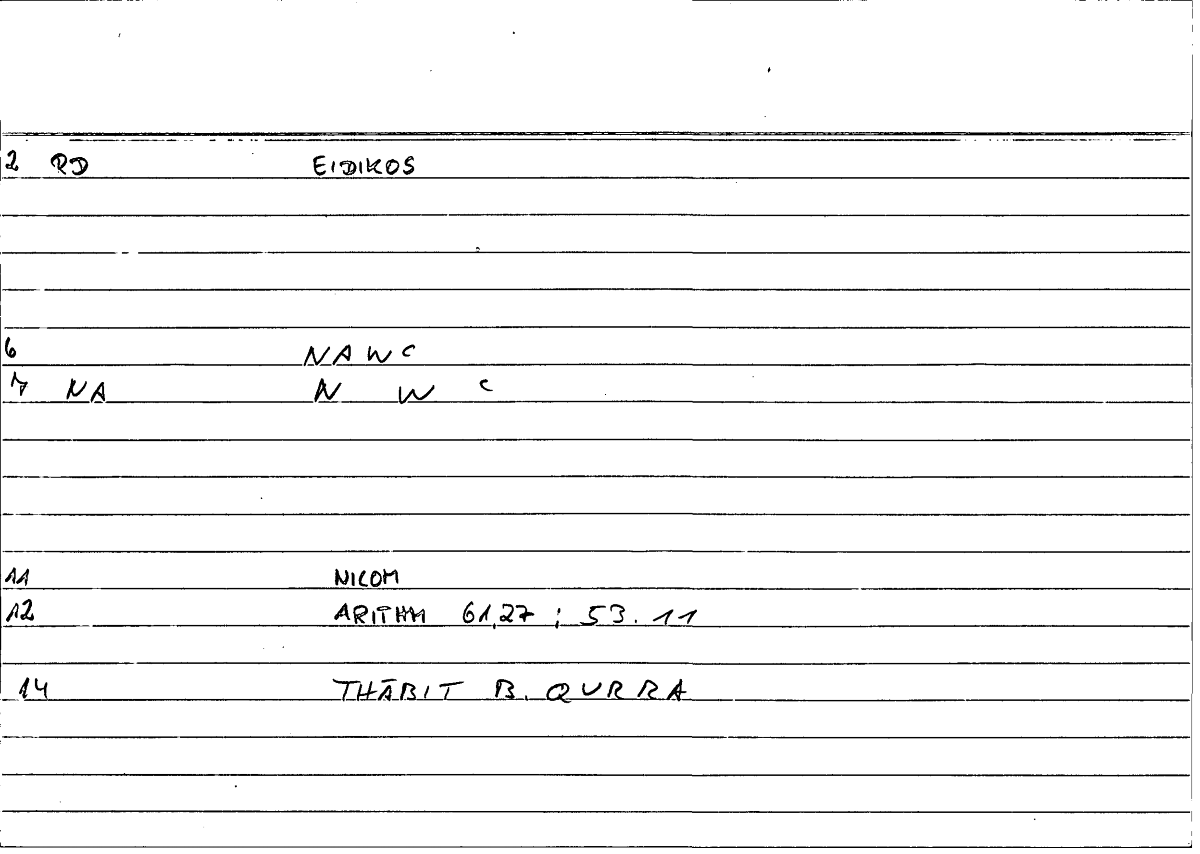 2 RD EIDIKOS
6 NAWC
7 NA N W C
11 NICOM
12 ARITHM 61,27 ; 53.11
14 THĀBIT B. QURRA